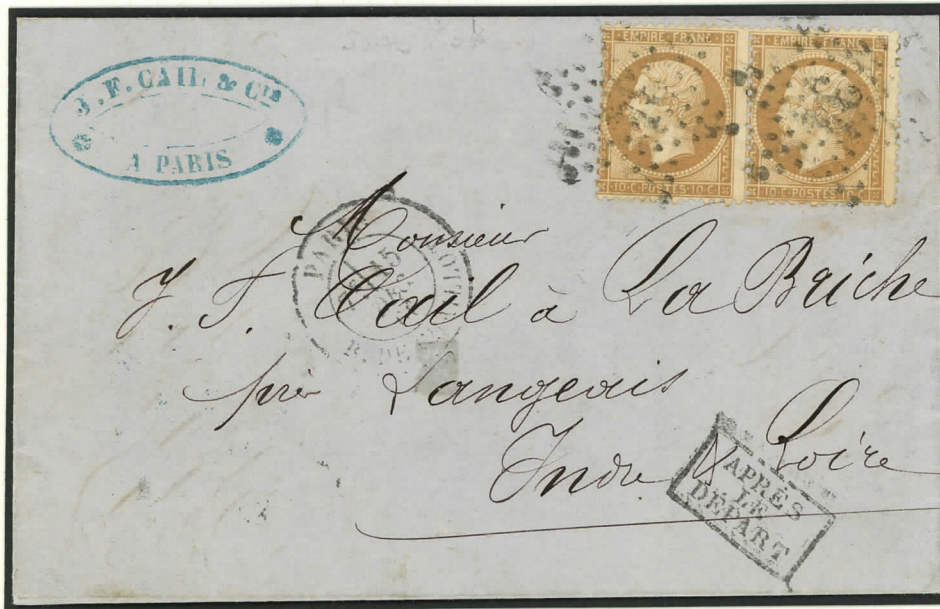 J. F. CAIL & Cie
A PARIS
EMPIRE FRANC.
10·C·POSTES·10·C
EMPIRE FRANC.
10·C·POSTES·10·C
PARIS
15
R. DE
Monsieur
J. F. Cail à La Briche
près Langeais
Indre & Loire
APRÈS
LE
DÉPART